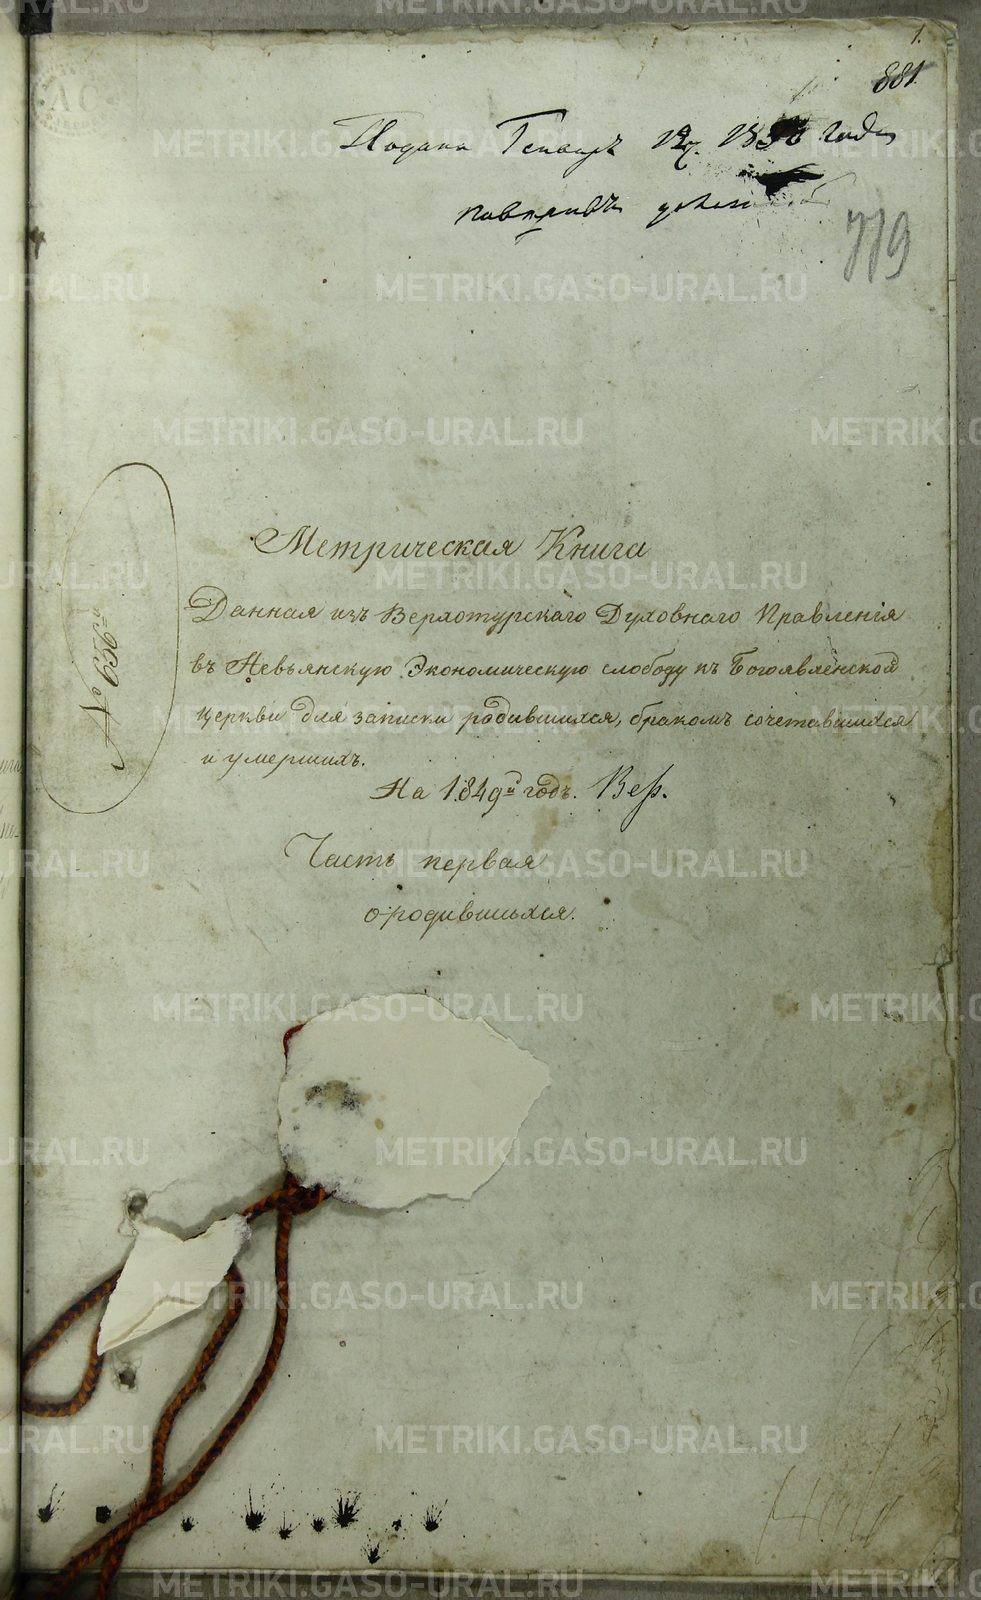 1.
881
Подана Генваря 19. 1850 года
779
№ 969й
Метрическая Книга
Данная изъ Верхотурскаго Духовнаго Правленія
въ Невьянскую Экономическую слободу къ Богоявленской
церкви для записки родившихся, бракомъ сочетавшихся
и умершихъ.
На 1849й годъ. Вер.
Часть первая
о родившихся.
METRIKI.GASO-URAL.RU